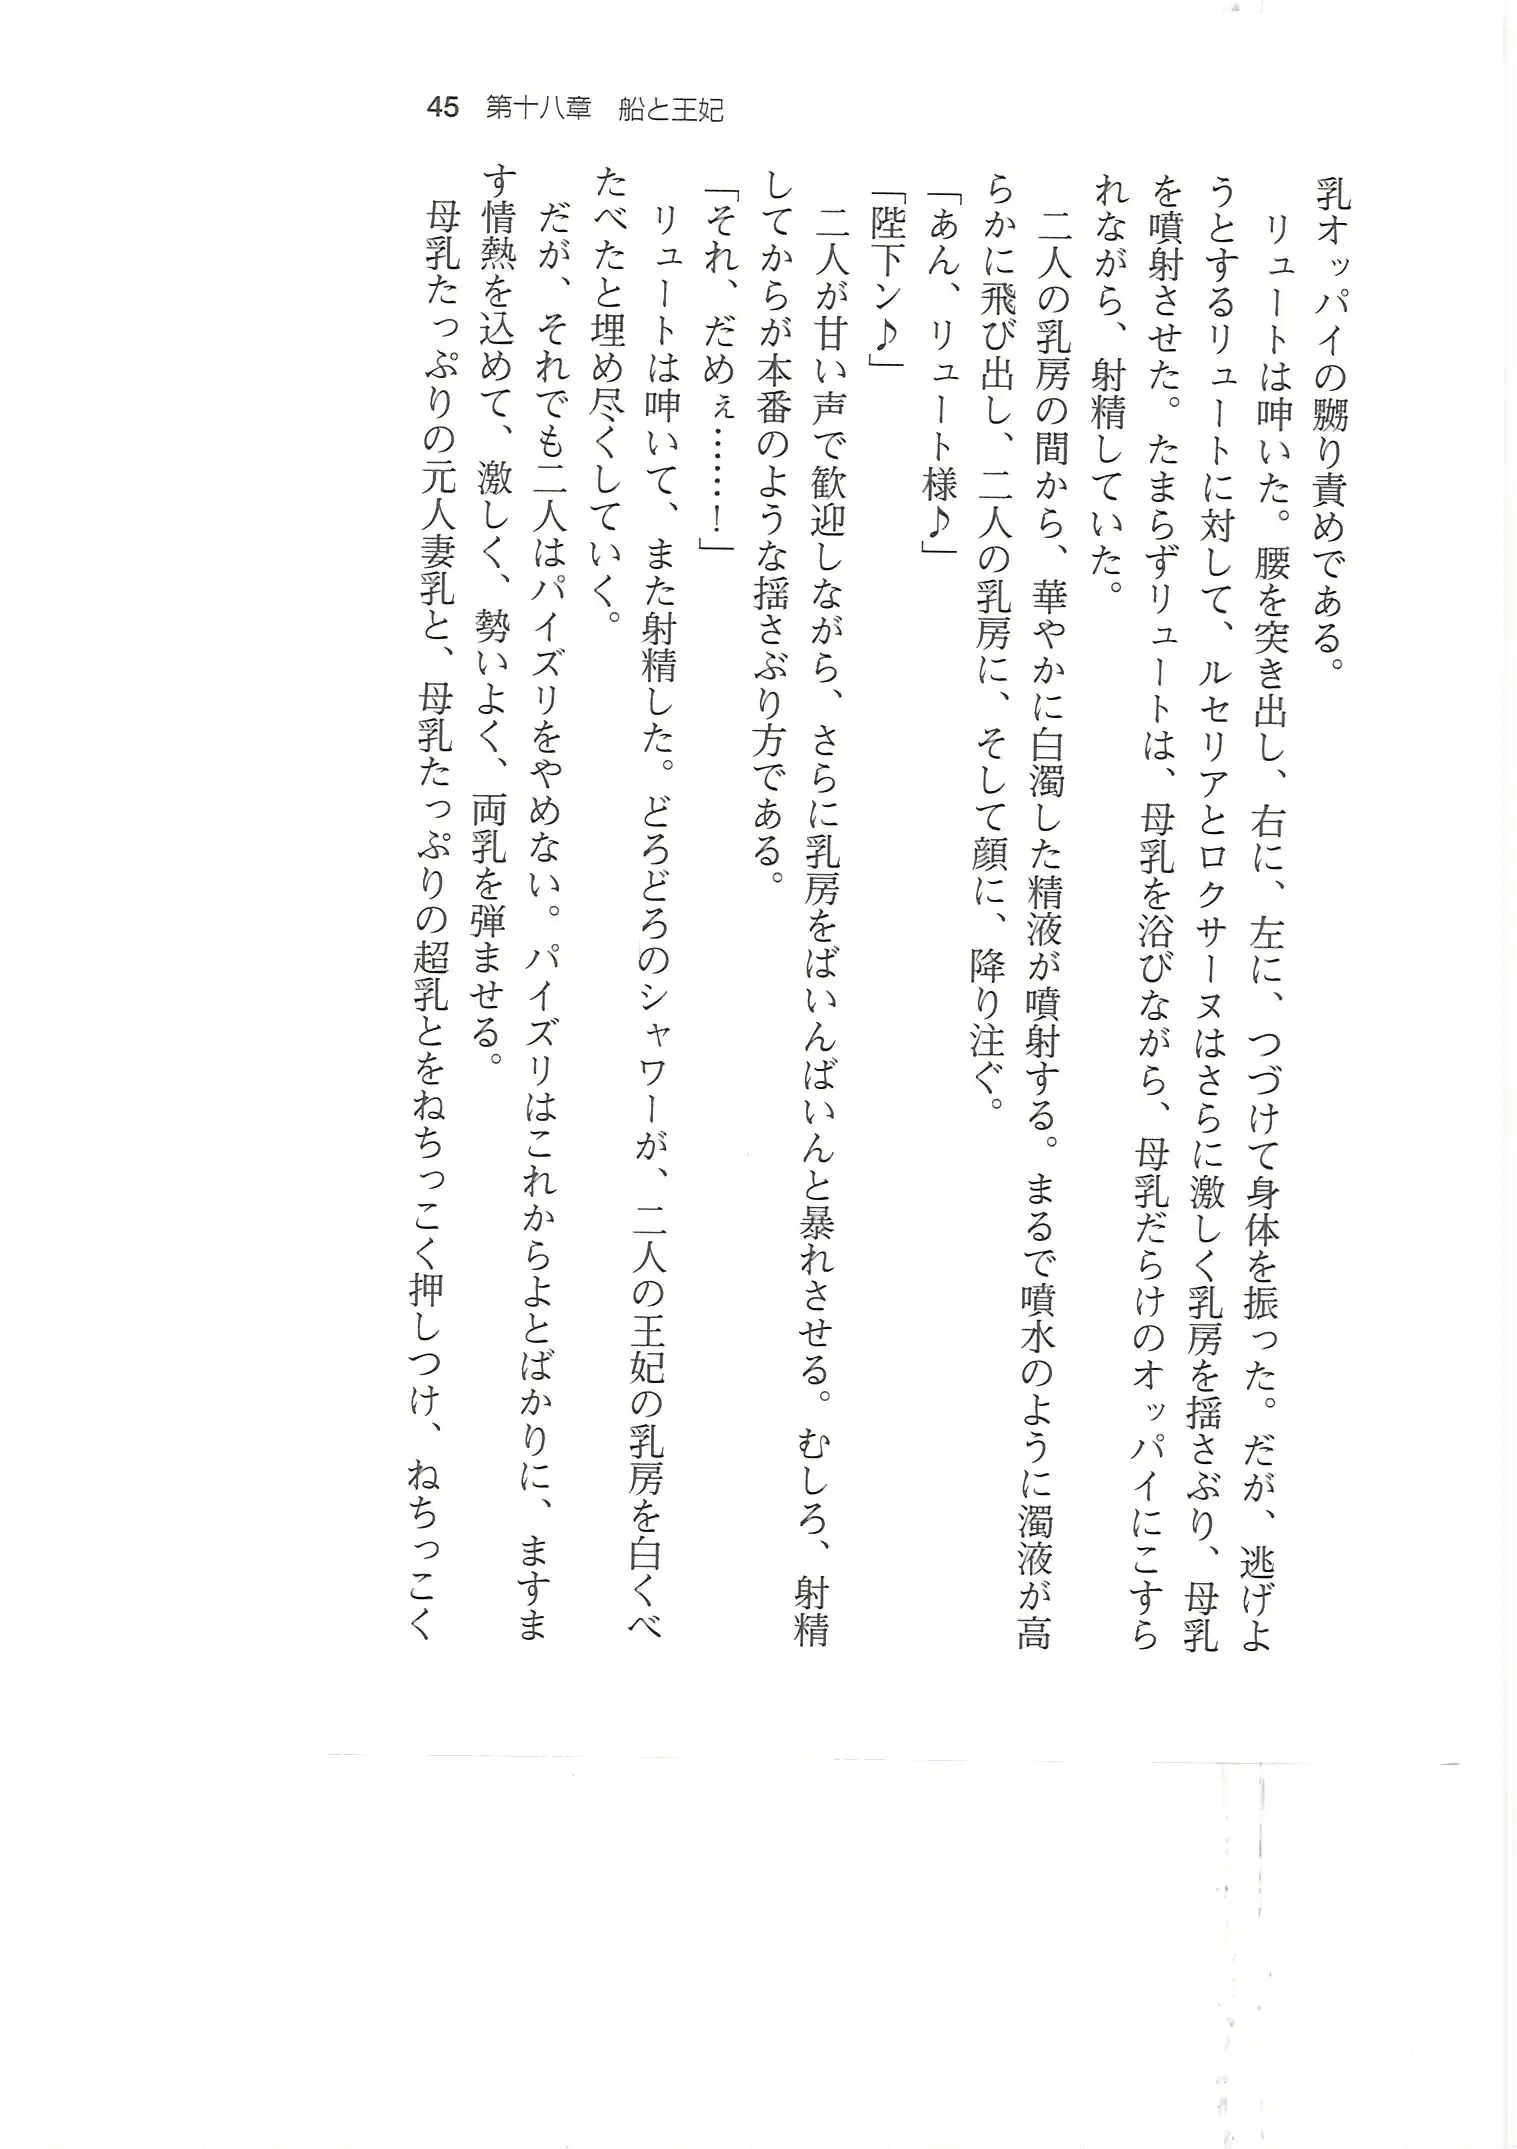 45 第十八章 船と王妃
乳オッパイの嬲り責めである。
リュートは呻いた。腰を突き出し、右に、左に、つづけて身体を振った。だが、逃げよ
うとするリュートに対して、ルセリアとロクサーヌはさらに激しく乳房を揺さぶり、母乳
を噴射させた。たまらずリュートは、母乳を浴びながら、母乳だらけのオッパイにこすら
れながら、射精していた。
二人の乳房の間から、華やかに白濁した精液が噴射する。まるで噴水のように濁液が高
らかに飛び出し、二人の乳房に、そして顔に、降り注ぐ。
「あん、リュート様♪」
「陛下ン♪」
二人が甘い声で歓迎しながら、さらに乳房をばいんばいんと暴れさせる。むしろ、射精
してからが本番のような揺さぶり方である。
「それ、だめぇ……!」
リュートは呻いて、また射精した。どろどろのシャワーが、二人の王妃の乳房を白くべ
たべたと埋め尽くしていく。
だが、それでも二人はパイズリをやめない。パイズリはこれからよとばかりに、ますま
す情熱を込めて、激しく、勢いよく、両乳を弾ませる。
母乳たっぷりの元人妻乳と、母乳たっぷりの超乳とをねちっこく押しつけ、ねちっこく